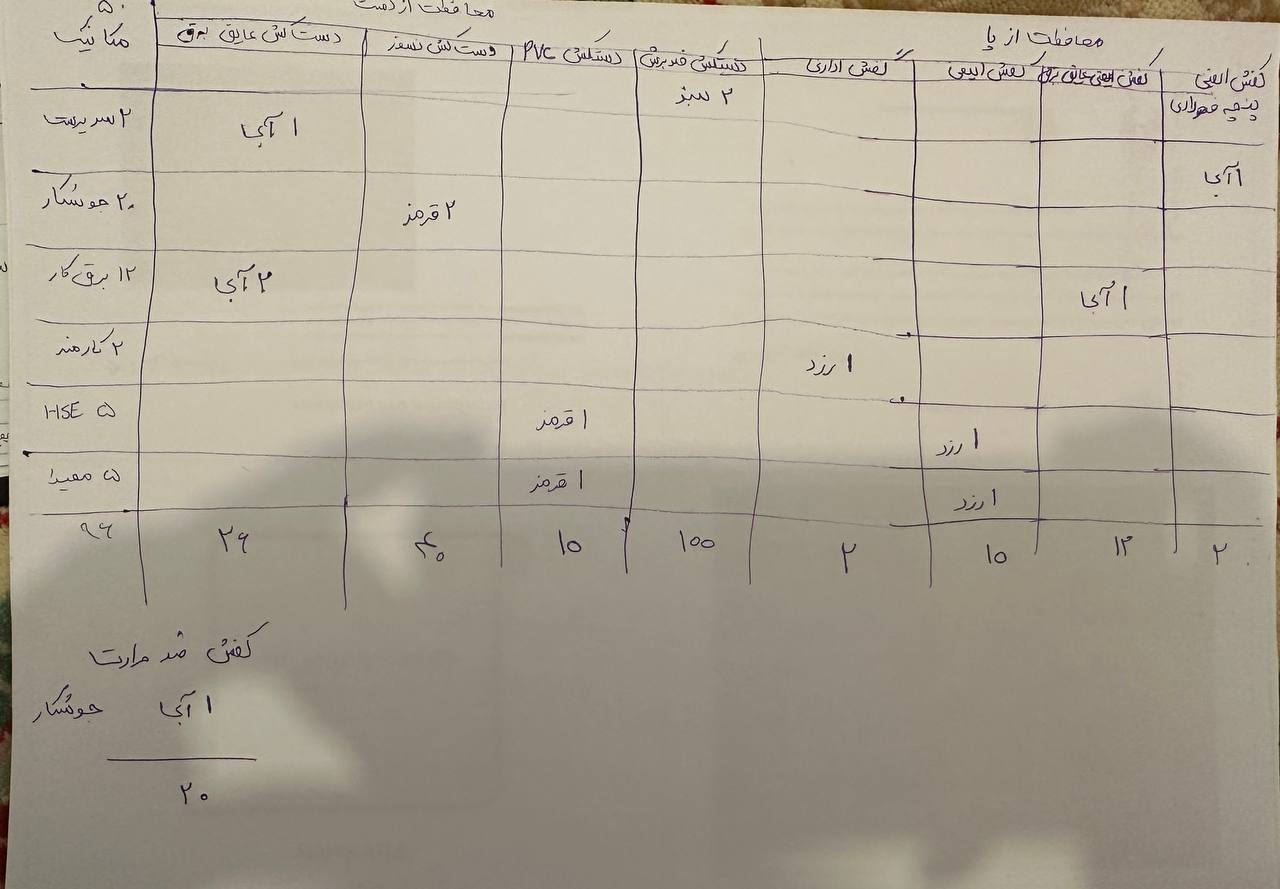 محافظت از پا
محافظت از دست
۵۰ مکانیک
کفش ایمنی پنجه فولادی
کفش ایمنی عایق برق
کفش ایمنی
کفش اداری
دستکش ضدبرش
دستکش PVC
دستکش نسوز
دستکش عایق برق
۲ سبز
۲ سرپرست
۱ آبی
۱ آبی
۲۰ جوشکار
۲ قرمز
۱۲ برق کار
۲ آبی
۱ آبی
۲ کارمند
۱ زرد
۵ HSE
۱ قرمز
۱ زرد
۵ ۱ قرمز
۱ زرد
۹۶ ۲۶ ۴۰ ۱۰ ۱۰۰ ۲ ۱۰ ۱۲ ۲
کفش ضد حرارت
جوشکار ۱ آبی
۲۰